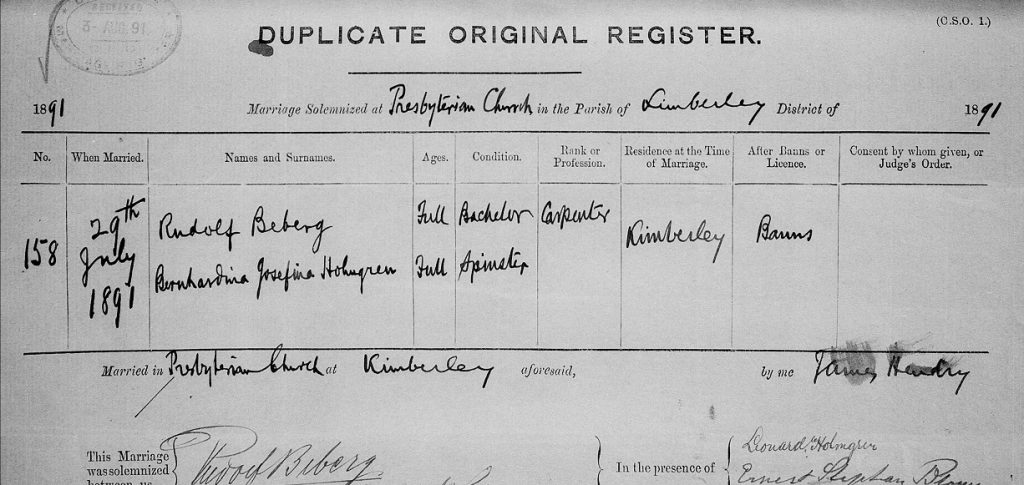 RECEIVED
3-AUG.91
(C.S.O. 1.)
DUPLICATE ORIGINAL REGISTER.
1891 Marriage Solemnized at Presbyterian Church in the Parish of Kimberley District of 1891
No. When Married. Names and Surnames. Ages. Condition. Rank or Profession. Residence at the Time of Marriage. After Banns or Licence. Consent by whom given, or Judge's Order.
158 29th July 1891 Rudolf Beberg Full Bachelor Carpenter Kimberley Banns
Bernhardina Josefina Holmgren Full Spinster
Married in Presbyterian Church at Kimberley aforesaid, by me James Hendry
This Marriage was solemnized between us Rudolf Beberg In the presence of Leonard Holmgren
Ernest Stephan